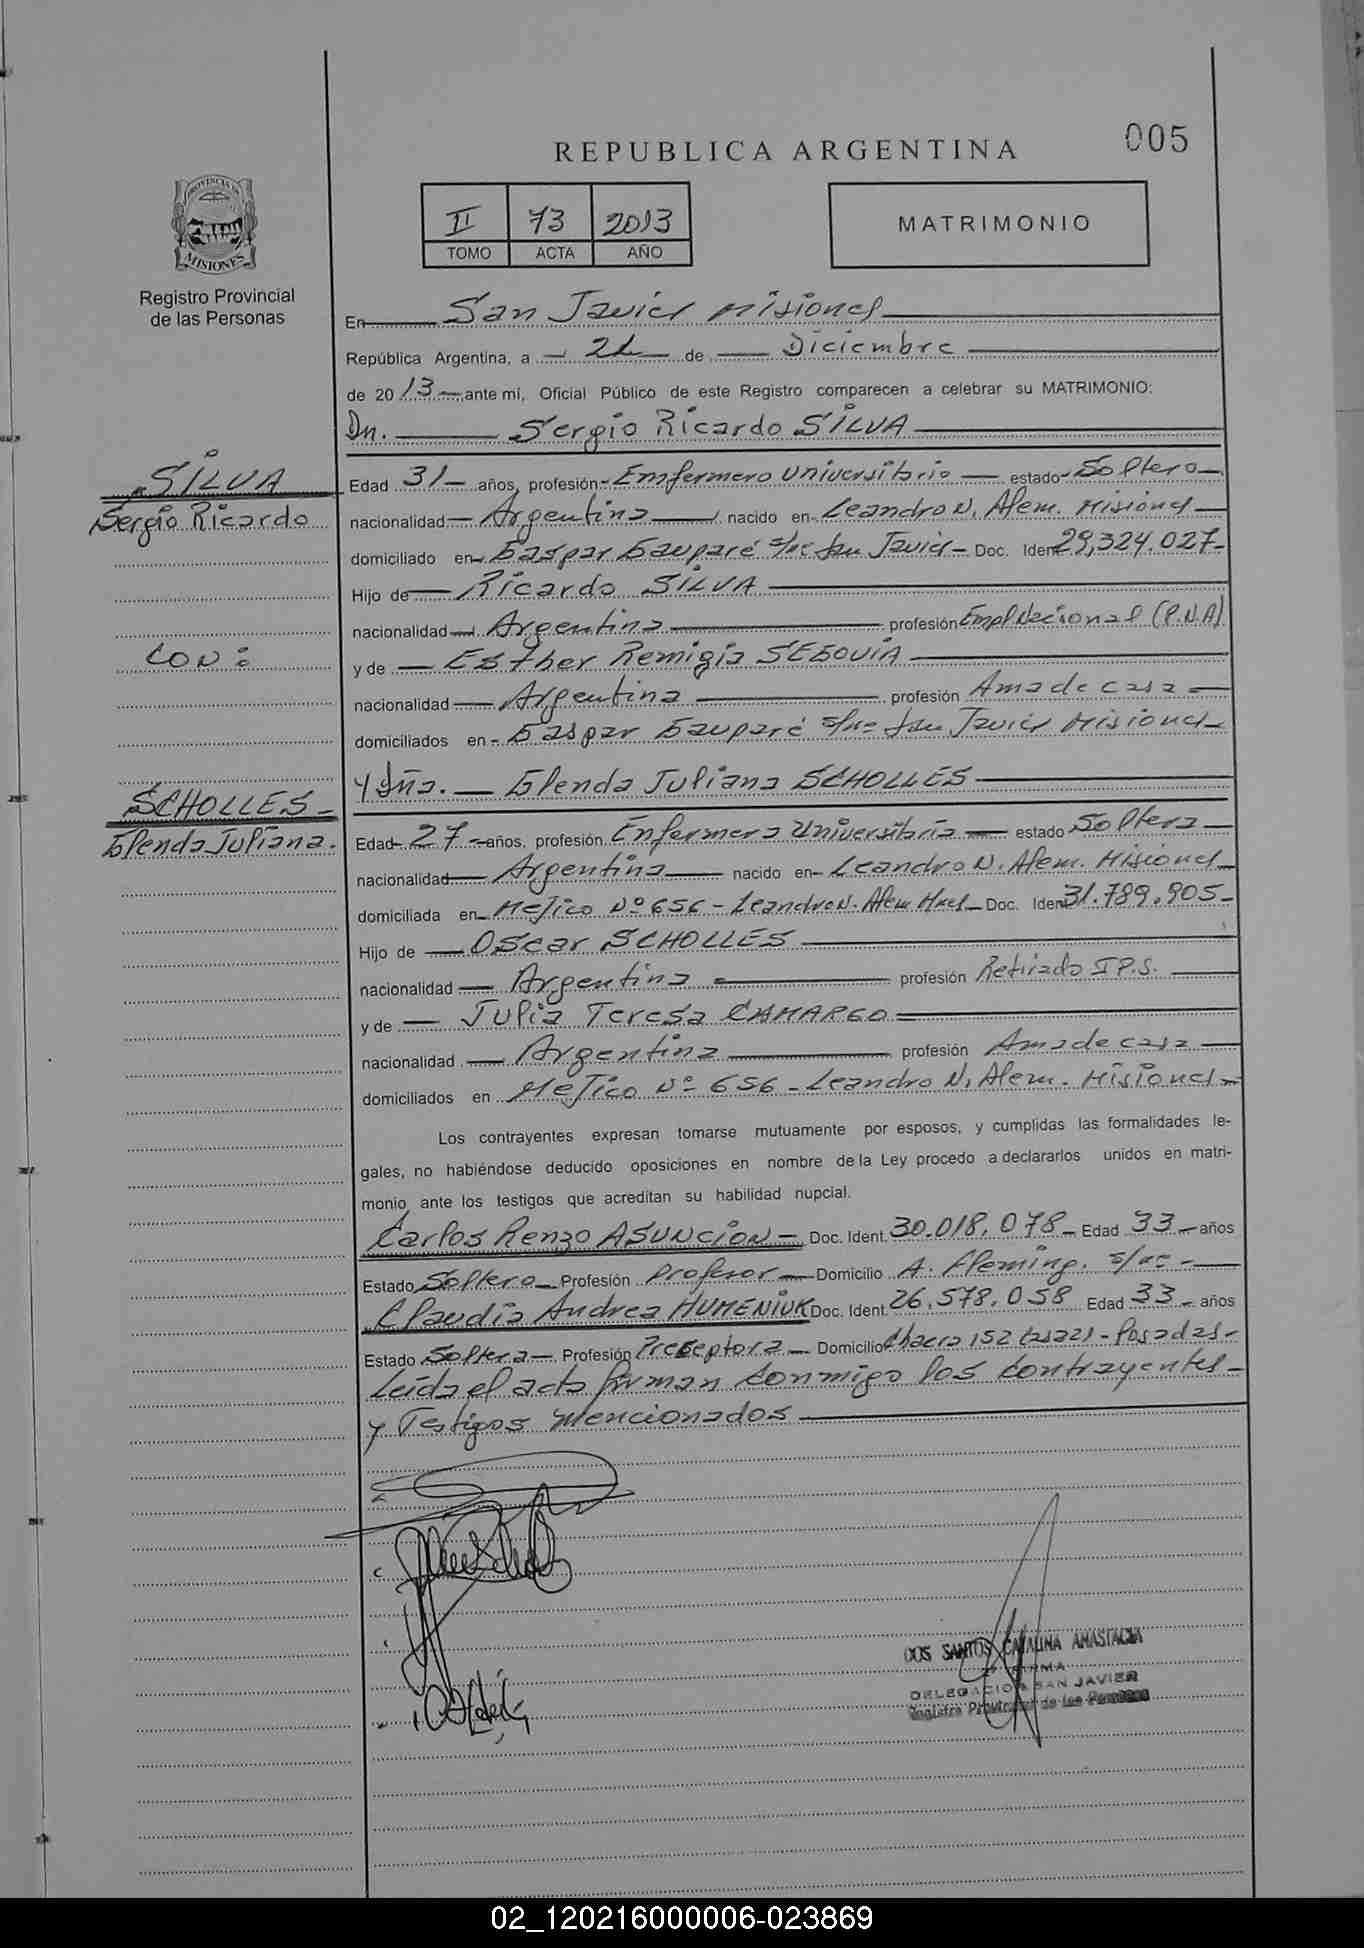 005
REPUBLICA ARGENTINA
II 73 2013
TOMO ACTA AÑO
MATRIMONIO
PROVINCIA DE
MISIONES
Registro Provincial
de las Personas
En San Javier Misiones
República Argentina, a de Diciembre
de 2013 ante mi, Oficial Público de este Registro comparecen a celebrar su MATRIMONIO:
Dn. Sergio Ricardo SILVA
SILVA
Sergio Ricardo
Edad 31 años, profesión Emfermero Universitario estado Soltero
nacionalidad Argentina nacido en Leandro N. Alem. Misiones
domiciliado en Gaspar Gauparé s/nº San Javier Doc. Ident 29,324.027
Hijo de Ricardo SILVA
nacionalidad Argentina profesión Empl Nacional (P.N.A)
CON:
y de Esther Remigia SEGOVIA
nacionalidad Argentina profesión Ama de casa
domiciliados en Gaspar Gauparé s/nº San Javier Misiones
y Dña. Glenda Juliana SCHOLLES
SCHOLLES
Glenda Juliana.
Edad 27 años, profesión Enfermera Universitaria estado Soltera
nacionalidad Argentina nacido en Leandro N. Alem. Misiones
domiciliada en Mejico Nº 656 - Leandro N. Alem Mnes Doc. Ident 31.789.905
Hijo de Oscar SCHOLLES
nacionalidad Argentina profesión Retirado I.P.S.
y de Julia Teresa CAMARGO
nacionalidad Argentina profesión Ama de casa
domiciliados en Mejico Nº 656 - Leandro N. Alem. Misiones
Los contrayentes expresan tomarse mutuamente por esposos, y cumplidas las formalidades le-
gales, no habiéndose deducido oposiciones en nombre de la Ley procedo a declararlos unidos en matri-
monio ante los testigos que acreditan su habilidad nupcial.
Carlos Renzo ASUNCION Doc. Ident. 30.018.078 Edad 33 años
Estado Soltero Profesión Profesor Domicilio A. Fleming. s/nº
Claudia Andrea HUMENIUK Doc. Ident. 26.578.058 Edad 33 años
Estado Soltera Profesión Preceptora Domicilio Chacra 152 - Posadas
Leída el acta firman conmigo los contrayentes
y Testigos mencionados
DOS SANTOS CATALINA ANASTACIA
FIRMA
DELEGACION SAN JAVIER
Registro Provincial de las Personas
02_120216000006-023869